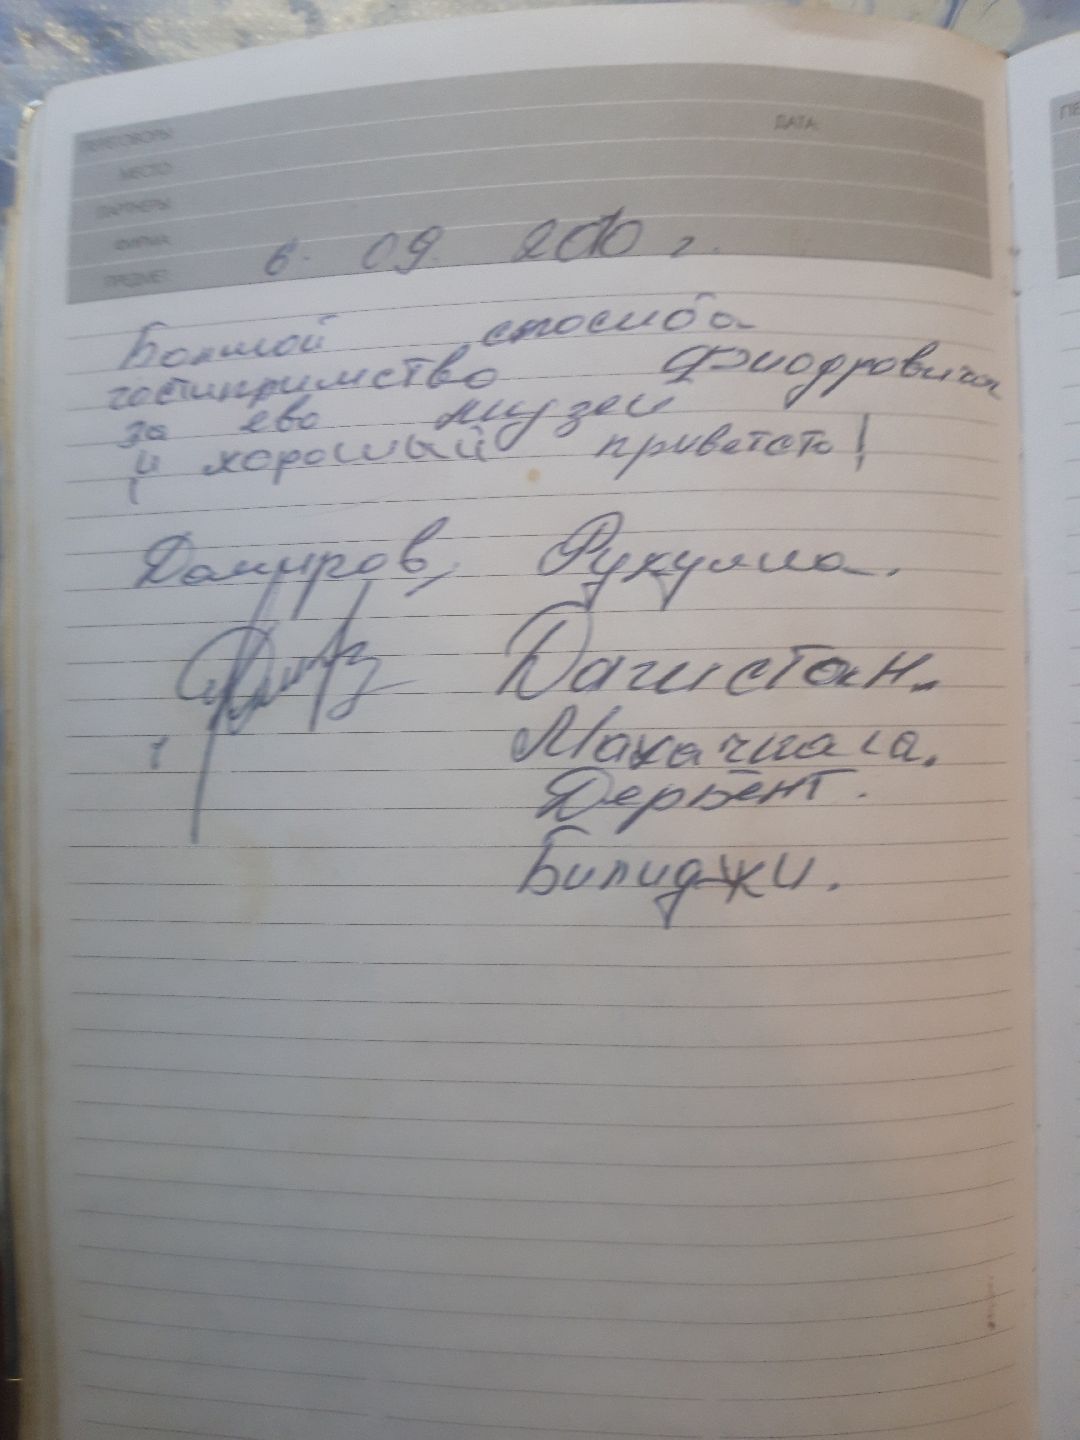 ПЕРЕГОВОРЫ:
ДАТА:
МЕСТО:
ПАРТНЕРЫ:
ФИРМА:
ПРЕДМЕТ:
6. 09. 2010 г.
Болшой спосиба
гостипримство Фиодровича
за ево музеи
и хороший приветсто!
Дамиров,
Дагистан.
Махачкала.
Дербент.
Билиджи.